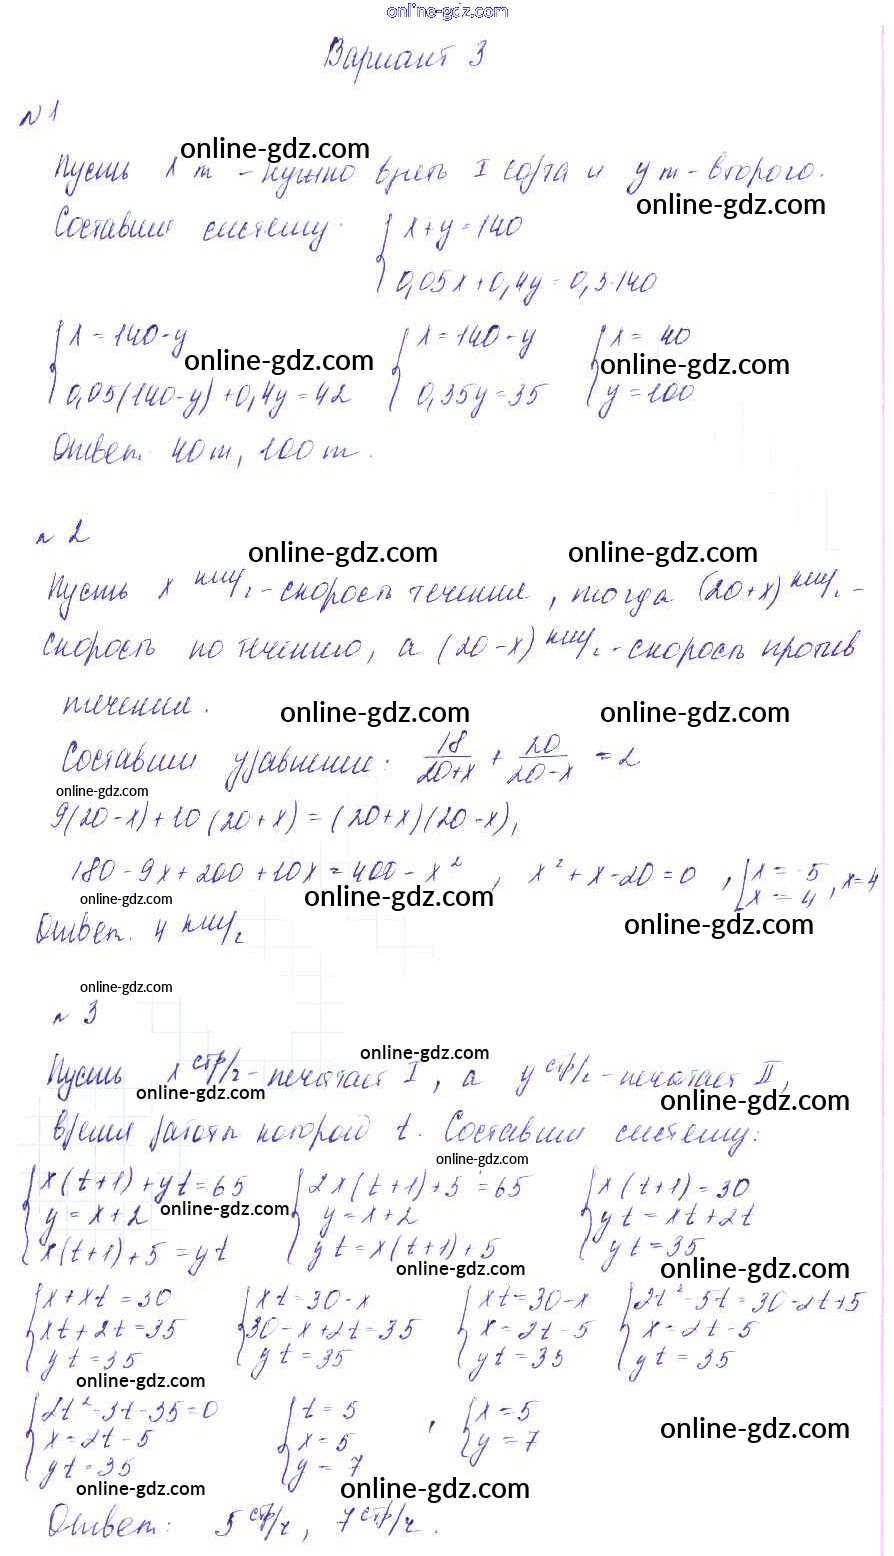 online-gdz.com
Вариант 3
№1
online-gdz.com
Пусть x т - нужно взять I сорта и y т - второго.
online-gdz.com
Составим систему: { x+y=140
0,05x+0,4y=0,3·140
{ x=140-y { x=140-y { x= 40
online-gdz.com online-gdz.com
0,05(140-y)+0,4y=42 0,35y=35 y=100
Ответ: 40т, 100т.
№2
online-gdz.com online-gdz.com
Пусть x км/ч - скорость течения, тогда (20+x) км/ч -
скорость по течению, а (20-x) км/ч - скорость против
течения.
online-gdz.com online-gdz.com
Составим уравнение: 18/(20+x) + 20/(20-x) = 2
online-gdz.com
9(20-x)+10(20+x)=(20+x)(20-x),
180-9x+200+10x=400-x², x²+x-20=0, [ x=-5 x=4, x=4
online-gdz.com online-gdz.com
Ответ. 4 км/ч
online-gdz.com
online-gdz.com
№3
online-gdz.com
Пусть x стр/ч - печатает I, а y стр/ч - печатает II,
online-gdz.com online-gdz.com
время работы которого t. Составим систему:
online-gdz.com
{ x(t+1)+yt=65 { 2x(t+1)+5=65 { x(t+1)=30
y=x+2 online-gdz.com y=x+2 yt=xt+2t
x(t+1)+5=yt yt=x(t+1)+5 yt=35
online-gdz.com online-gdz.com
{ x+xt=30 { xt=30-x { xt=30-x { 2t²-5t=30-2t+5
xt+2t=35 30-x+2t=35 x=2t-5 x=2t-5
yt=35 yt=35 yt=35 yt=35
online-gdz.com
{ 2t²-3t-35=0 { t=5 , { x=5
x=2t-5 x=5 y=7 online-gdz.com
yt=35 y=7
online-gdz.com online-gdz.com
Ответ: 5 стр/ч, 7 стр/ч.